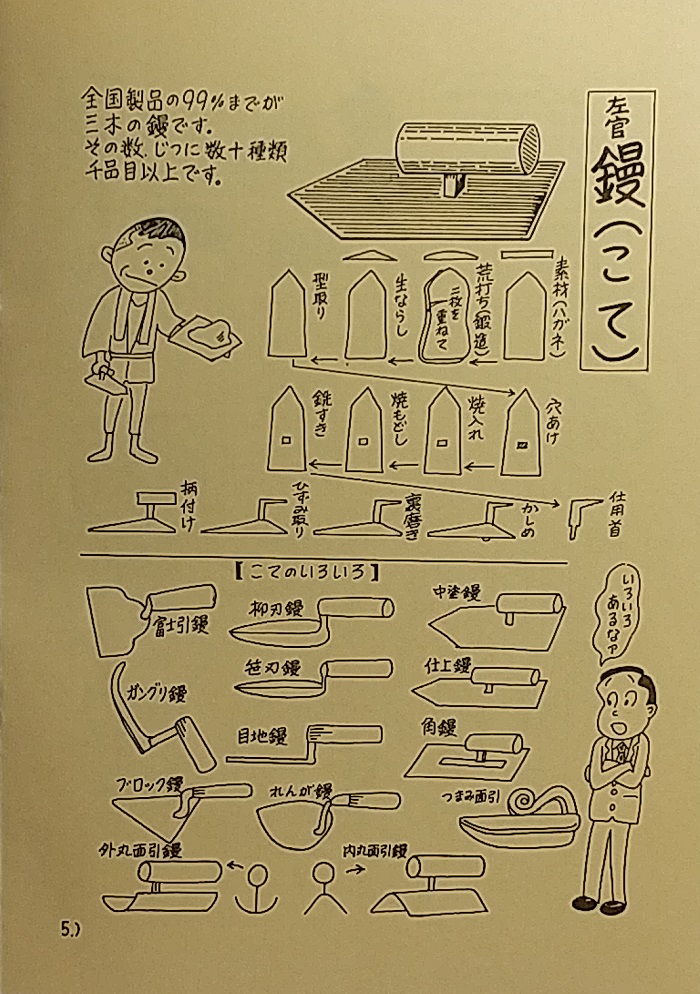 左官 鏝(こて)
全国製品の99%までが
三木の鏝です。
その数、じつに数十種類
千品目以上です。
素材(ハガネ)
荒打ち(鍛造)
二枚を
重ねて
生ならし
型取り
穴あけ
焼入れ
焼もどし
銑すき
仕用首
かしめ
裏磨き
ひずみ取り
柄付け
【こてのいろいろ】
富士引鏝
柳刃鏝
中塗鏝
いろいろ
あるなァ
ガングリ鏝
笹刃鏝
仕上鏝
目地鏝
角鏝
ブロック鏝
れんが鏝
つまみ面引
外丸面引鏝
内丸面引鏝
5.)